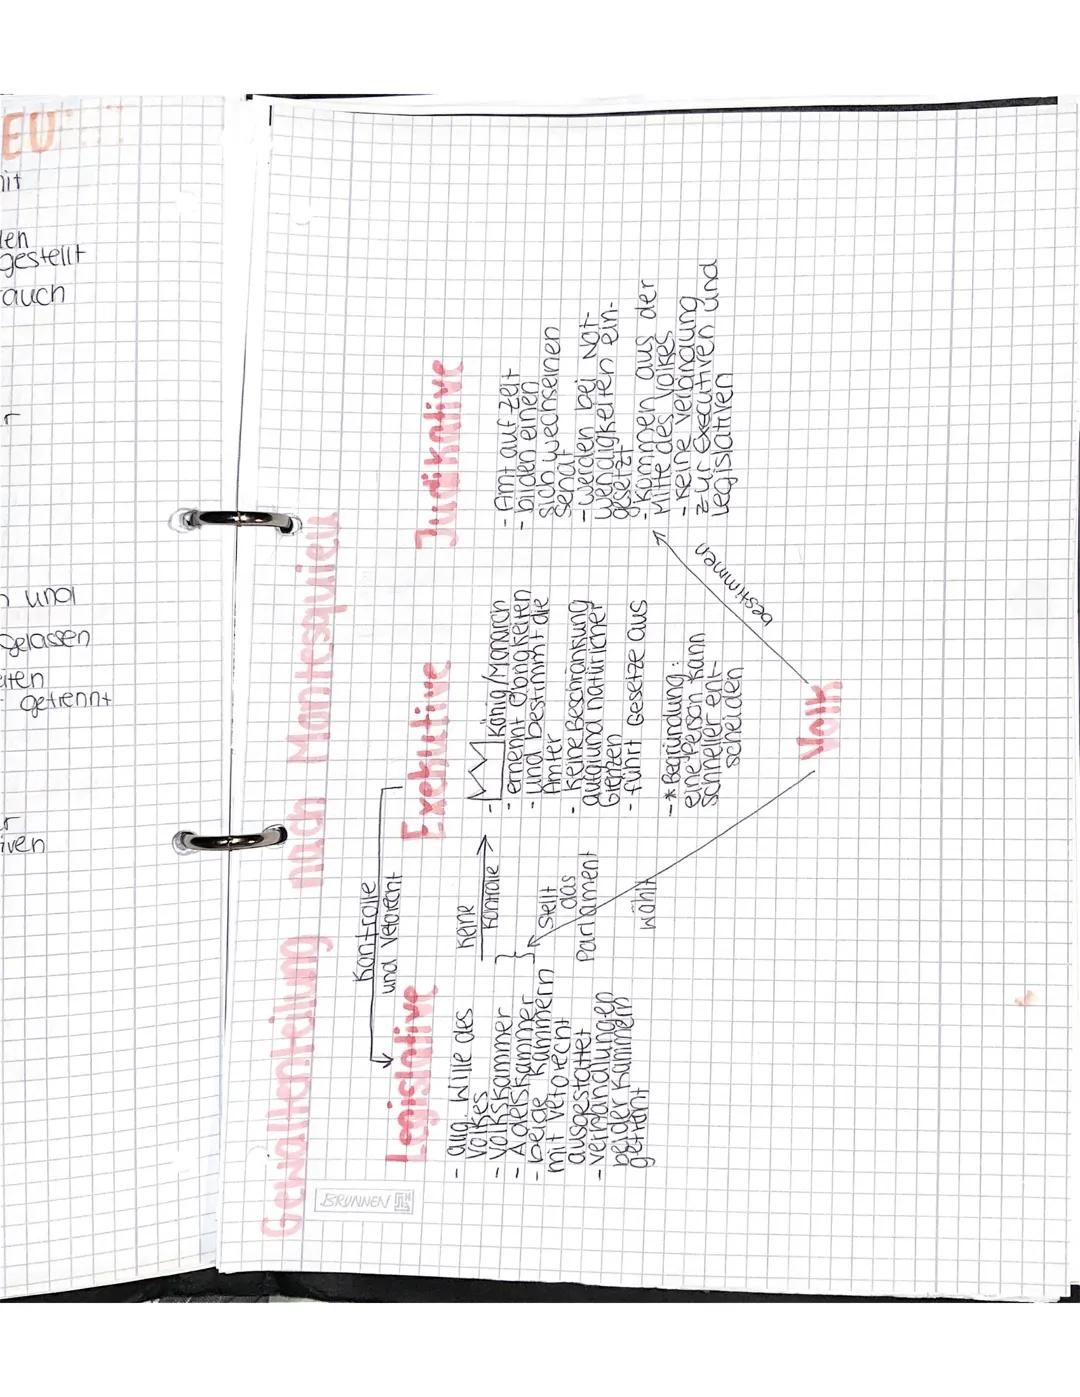 EU
mit
den
gestellt
auch
r
n und
gelassen
eiten
getrennt
er
iven
Gewaltenteilung nach Montesquieu
Kontrolle
und Vetorecht
Legislative
- allg. Wille des
Volkes
- Volkskammer
- Adelskammer
- beide Kammern
mit Vetorecht
ausgestattet
- Verhandlungen
beider Kammern
getrennt
keine
Kontrolle
stellt
das
Parlament
wählt
Exekutive
- König/Monarch
- ernennt Obrigkeiten
- und bestimmt die
Ämter
- keine Beschränkung
aufgrund natürlicher
Grenzen
- führt Gesetze aus
-* Begründung:
eine Person kann
schneller ent-
scheiden
Judikative
- Amt auf Zeit
- bilden einen
sich wechselnen
Senat
- werden bei Not-
wendigkeiten ein-
gesetzt
- kommen aus der
Mitte des Volkes
- keine Verbindung
zur Executiven und
Legislativen
bestimmen
Volk
BRUNNEN